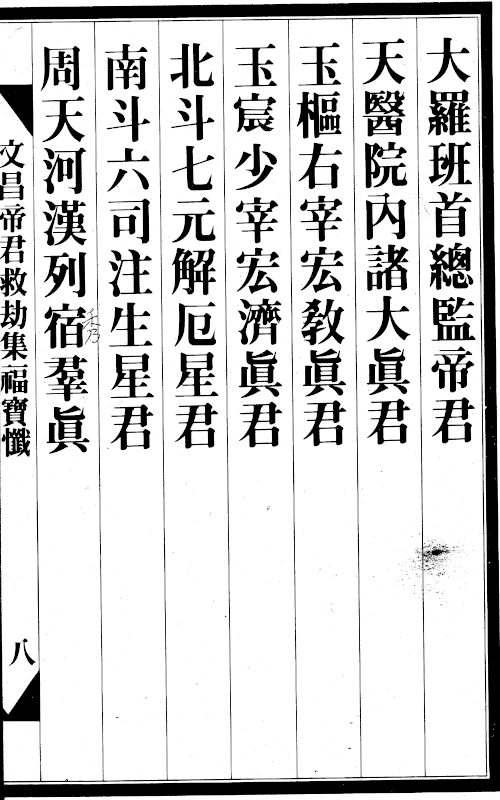 大羅班首總監帝君
天醫院內諸大眞君
玉樞右宰宏教眞君
玉宸少宰宏濟眞君
北斗七元解厄星君
南斗六司注生星君
周天河漢列宿羣眞
文昌帝君救劫集福寶懺
八